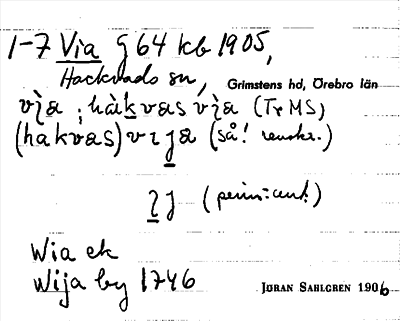 1-7 Via g 64 kb 1905,
Hackvads sn, Grimstens hd, Örebro län
vìa ; hàkvas vìa (Tr MS)
(hakvas) vɪja (så! renskr.)
ɪj
Wia ek
Wija by 1746
JÖRAN SAHLGREN 1906